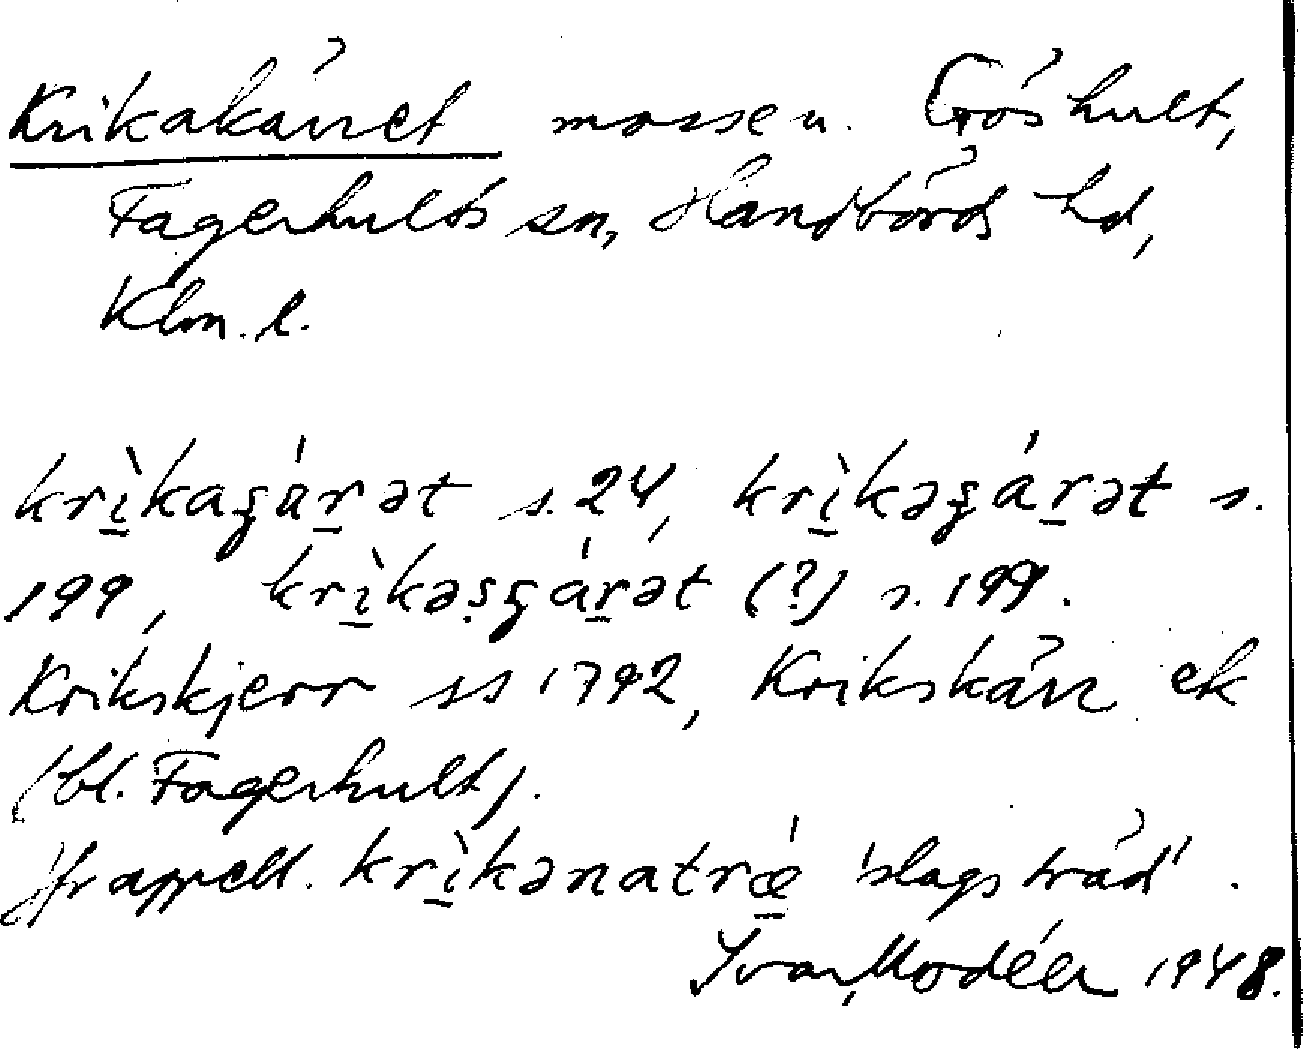 Krikakärret mosse u. Gröshult,
Fagerhults sn, Handbörds hd,
Klm. l.
krìkaʂárət s. 24, krìkəʂárət s.
199, krìkəsʂárət (?) s. 199.
Krikskjerr ss 1792, Krikskärr ek
(bl. Fagerhult).
Jfr appell. krìkənatrǽ 'slags träd'.
Ivar Modéer 1948.